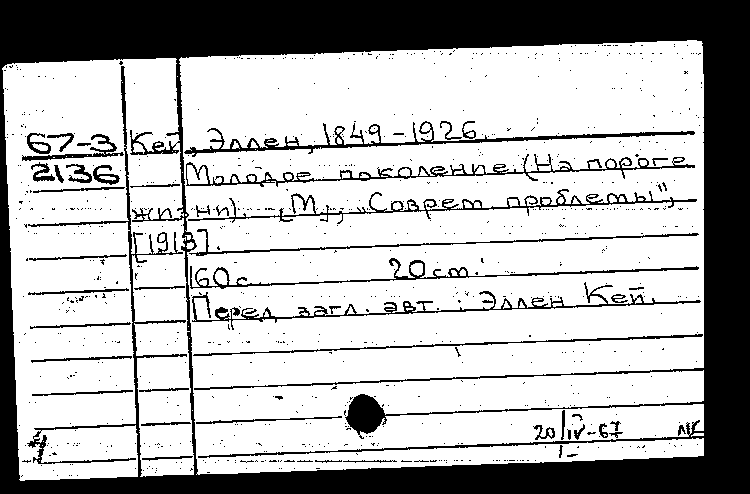 67-3 Кей, Эллен, 1849-1926.
2136 Молодое поколение. (На пороге
жизни). - [М.], "Соврем. проблемы",
[1913].
160 с. 20 см.
Перед загл. авт.: Эллен Кей.
20/IV-67